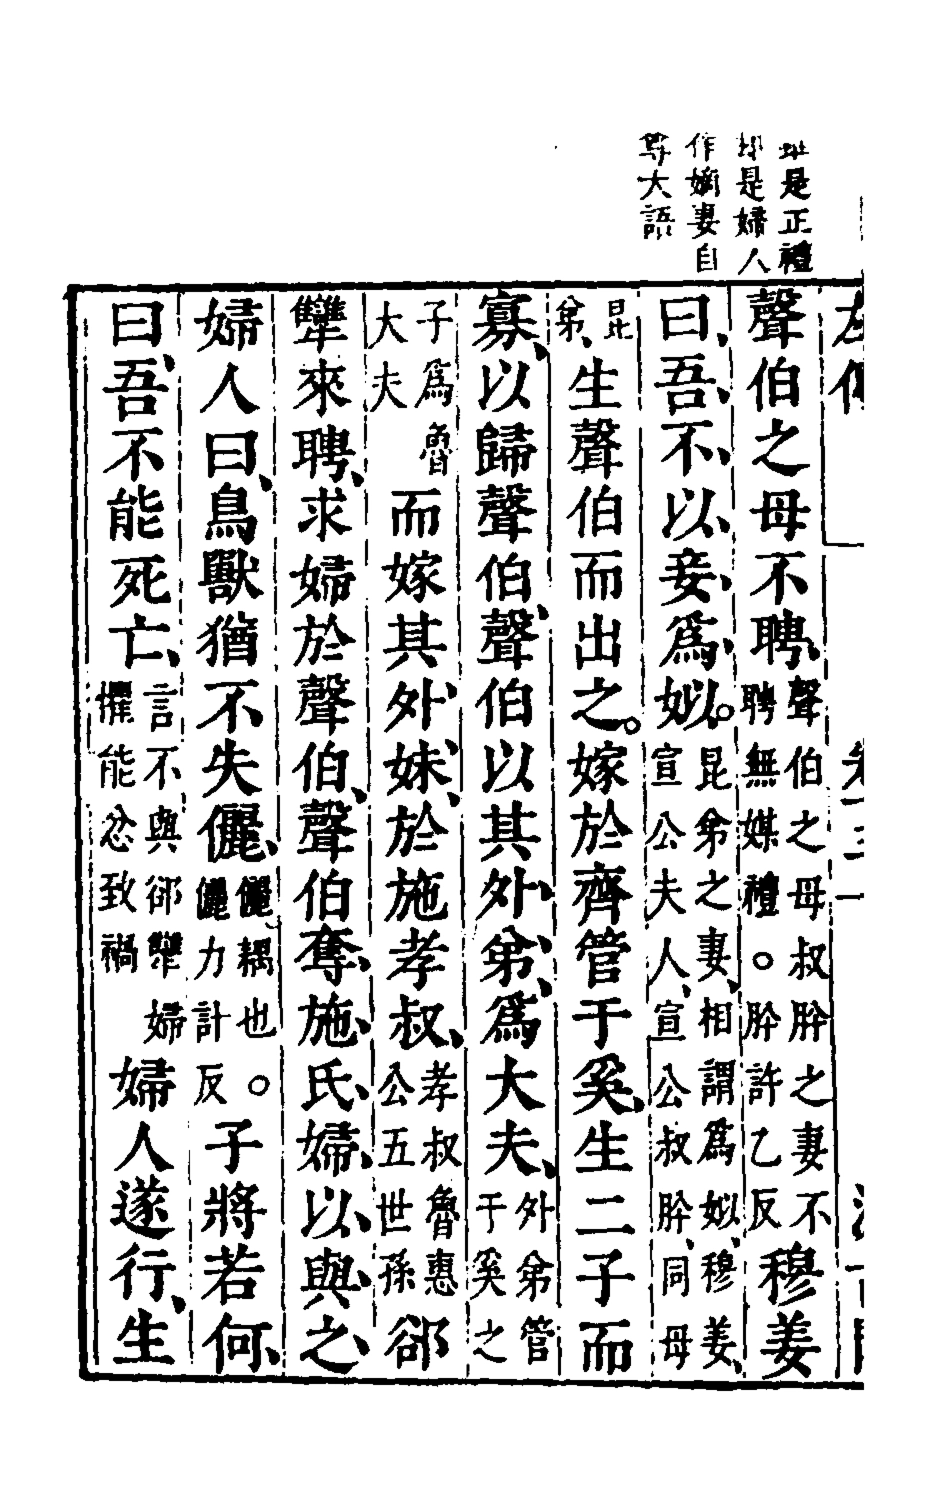 是正禮
是婦人
作嫡妻自
尊大語
左傳
聲伯之母不聘、聲伯之母叔肸之妻不聘無媒禮。肸許乙反穆姜
曰、吾、不、以、妾、爲、姒。昆弟之妻、相謂爲姒、穆姜、宣公夫人、宣公叔肸、同母
昆弟、生聲伯而出之。嫁於齊管于奚、生二子而
寡、以歸聲伯、聲伯以其外、弟、爲大夫、外弟管于奚之
子爲魯大夫而嫁其外、妹、於施孝叔、孝叔魯惠公五世孫郤
犨來聘、求婦於聲伯、聲伯奪、施、氏、婦、以、與、之、
婦人曰、鳥獸猶不失儷、儷、耦也。儷力計反子將若何、
曰、吾不能死亡、言不與郤犨婦懼能忿致禍婦人遂行、生